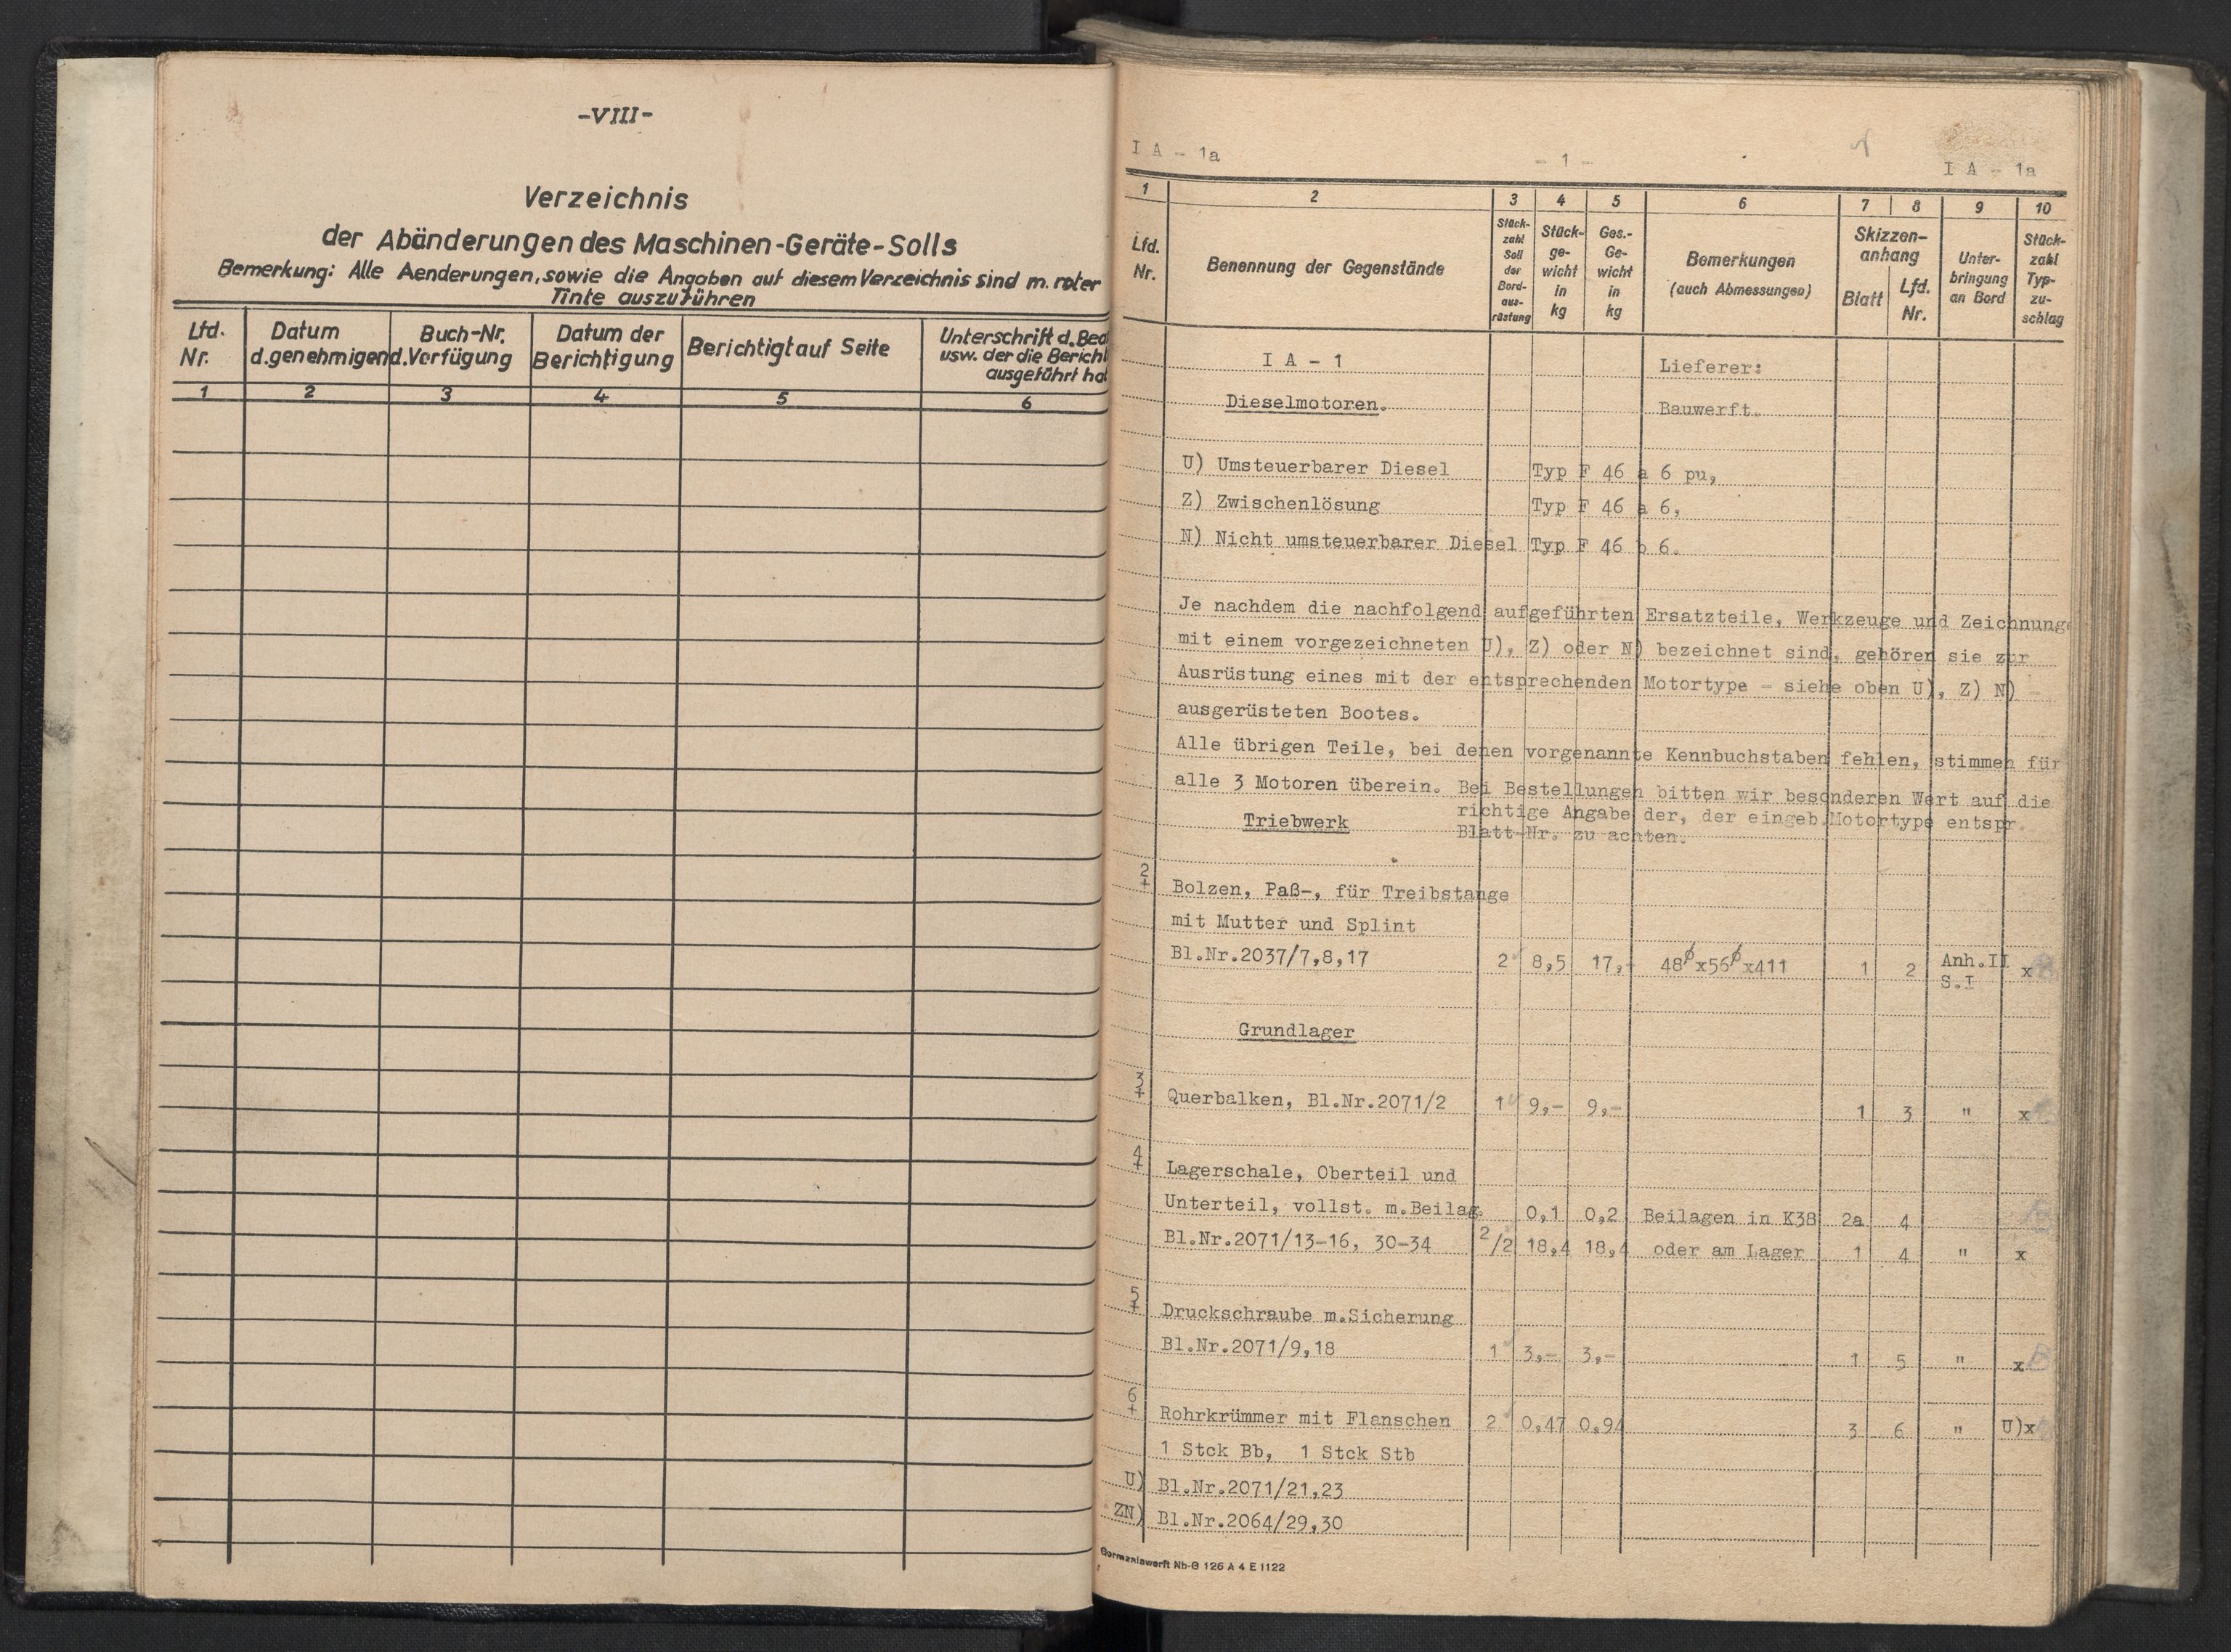 -VIII-
Verzeichnis
der Abänderungen des Maschinen-Geräte-Solls
Bemerkung: Alle Aenderungen, sowie die Angaben auf diesem Verzeichnis sind m. roter
Tinte auszuführen
Lfd. Nr. Datum d. genehmigend. Buch-Nr. Verfügung Datum der Berichtigung Berichtigt auf Seite Unterschrift d. Bea
usw. der die Bericht
ausgeführt hat
1 2 3 4 5 6
I A - 1a - 1 - I A - 1a
1 2 3 4 5 6 7 8 9 10
Lfd. Nr. Benennung der Gegenstände Stück-zahl Soll der Bord-aus-rüstung Stück-ge-wicht in kg Ges.-Ge-wicht in kg Bemerkungen (auch Abmessungen) Skizzen-anhang Blatt Lfd. Nr. Unter-bringung an Bord Stück-zahl Typ-zu-schlag
I A - 1 Lieferer:
Dieselmotoren. Bauwerft.
U) Umsteuerbarer Diesel Typ F 46 a 6 pu,
Z) Zwischenlösung Typ F 46 a 6,
N) Nicht umsteuerbarer Diesel Typ F 46 b 6.
Je nachdem die nachfolgend aufgeführten Ersatzteile, Werkzeuge und Zeichnung
mit einem vorgezeichneten U), Z) oder N) bezeichnet sind, gehören sie zur
Ausrüstung eines mit der entsprechenden Motortype - siehe oben U), Z) N) -
ausgerüsteten Bootes.
Alle übrigen Teile, bei denen vorgenannte Kennbuchstaben fehlen, stimmen für
alle 3 Motoren überein. Bei Bestellungen bitten wir besonderen Wert auf die
richtige Angabe der, der eingeb. Motortype entspr.
Triebwerk Blatt-Nr. zu achten.
2+ Bolzen, Paß-, für Treibstange
mit Mutter und Splint
Bl.Nr.2037/7,8,17 2 8,5 17,- 48ϕx56ϕx411 1 2 Anh.II x
S.I
Grundlager
3+ Querbalken, Bl.Nr.2071/2 1 9,- 9,- 1 3 " x
4+ Lagerschale, Oberteil und
Unterteil, vollst. m.Beilag. 0,1 0,2 Beilagen in K38 2a 4
Bl.Nr.2071/13-16, 30-34 2/2 18,4 18,4 oder am Lager 1 4 " x
5+ Druckschraube m.Sicherung
Bl.Nr.2071/9,18 1 3,- 3,- 1 5 " x
6+ Rohrkrümmer mit Flanschen 2 0,47 0,94 3 6 " U)x
1 Stck Bb, 1 Stck Stb
U) Bl.Nr.2071/21,23
ZN) Bl.Nr.2064/29,30
Germaniawerft Nb-G 126 A 4 E 1122